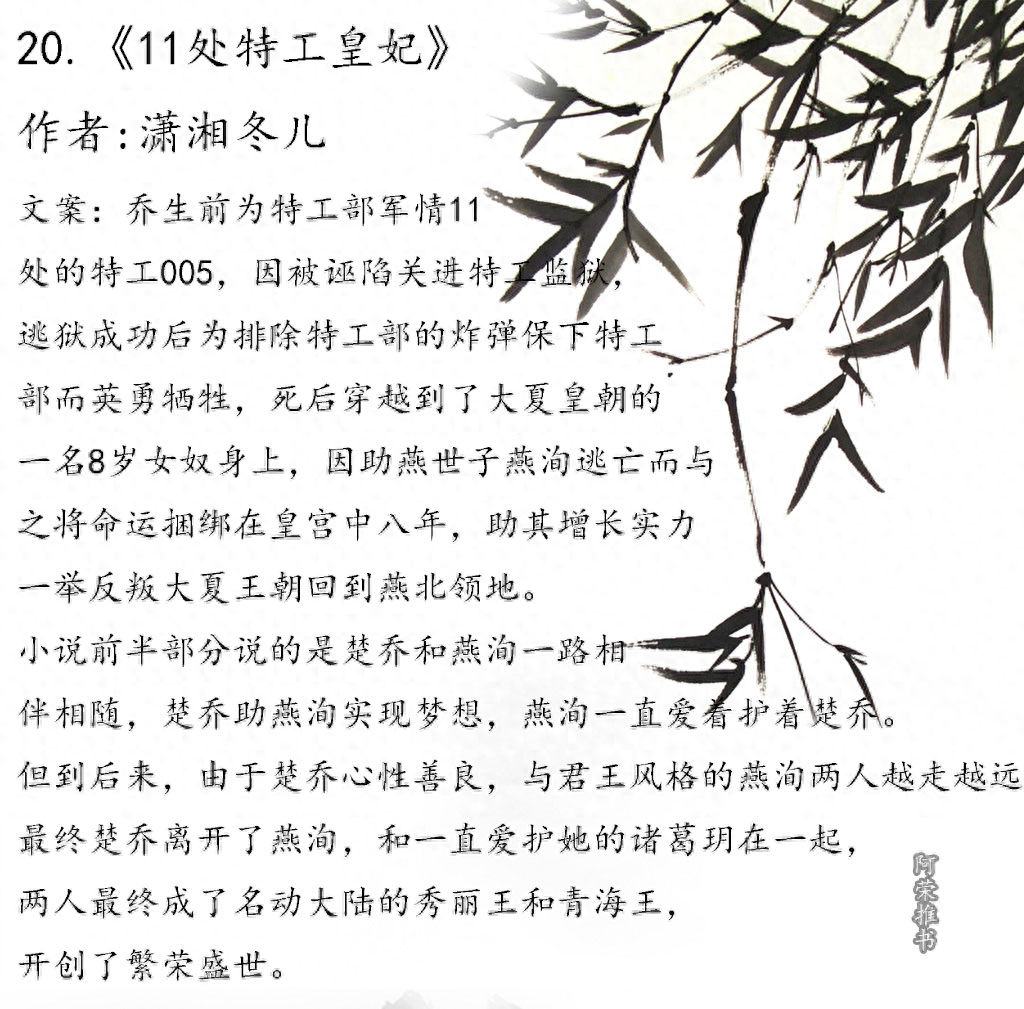 20.《11处特工皇妃》
作者:潇湘冬儿
文案：乔生前为特工部军情11
处的特工005，因被诬陷关进特工监狱，
逃狱成功后为排除特工部的炸弹保下特工
部而英勇牺牲，死后穿越到了大夏皇朝的
一名8岁女奴身上，因助燕世子燕洵逃亡而与
之将命运捆绑在皇宫中八年，助其增长实力
一举反叛大夏王朝回到燕北领地。
小说前半部分说的是楚乔和燕洵一路相
伴相随，楚乔助燕洵实现梦想，燕洵一直爱着护着楚乔。
但到后来，由于楚乔心性善良，与君王风格的燕洵两人越走越远
最终楚乔离开了燕洵，和一直爱护她的诸葛玥在一起，
两人最终成了名动大陆的秀丽王和青海王，
开创了繁荣盛世。
阿荣推书